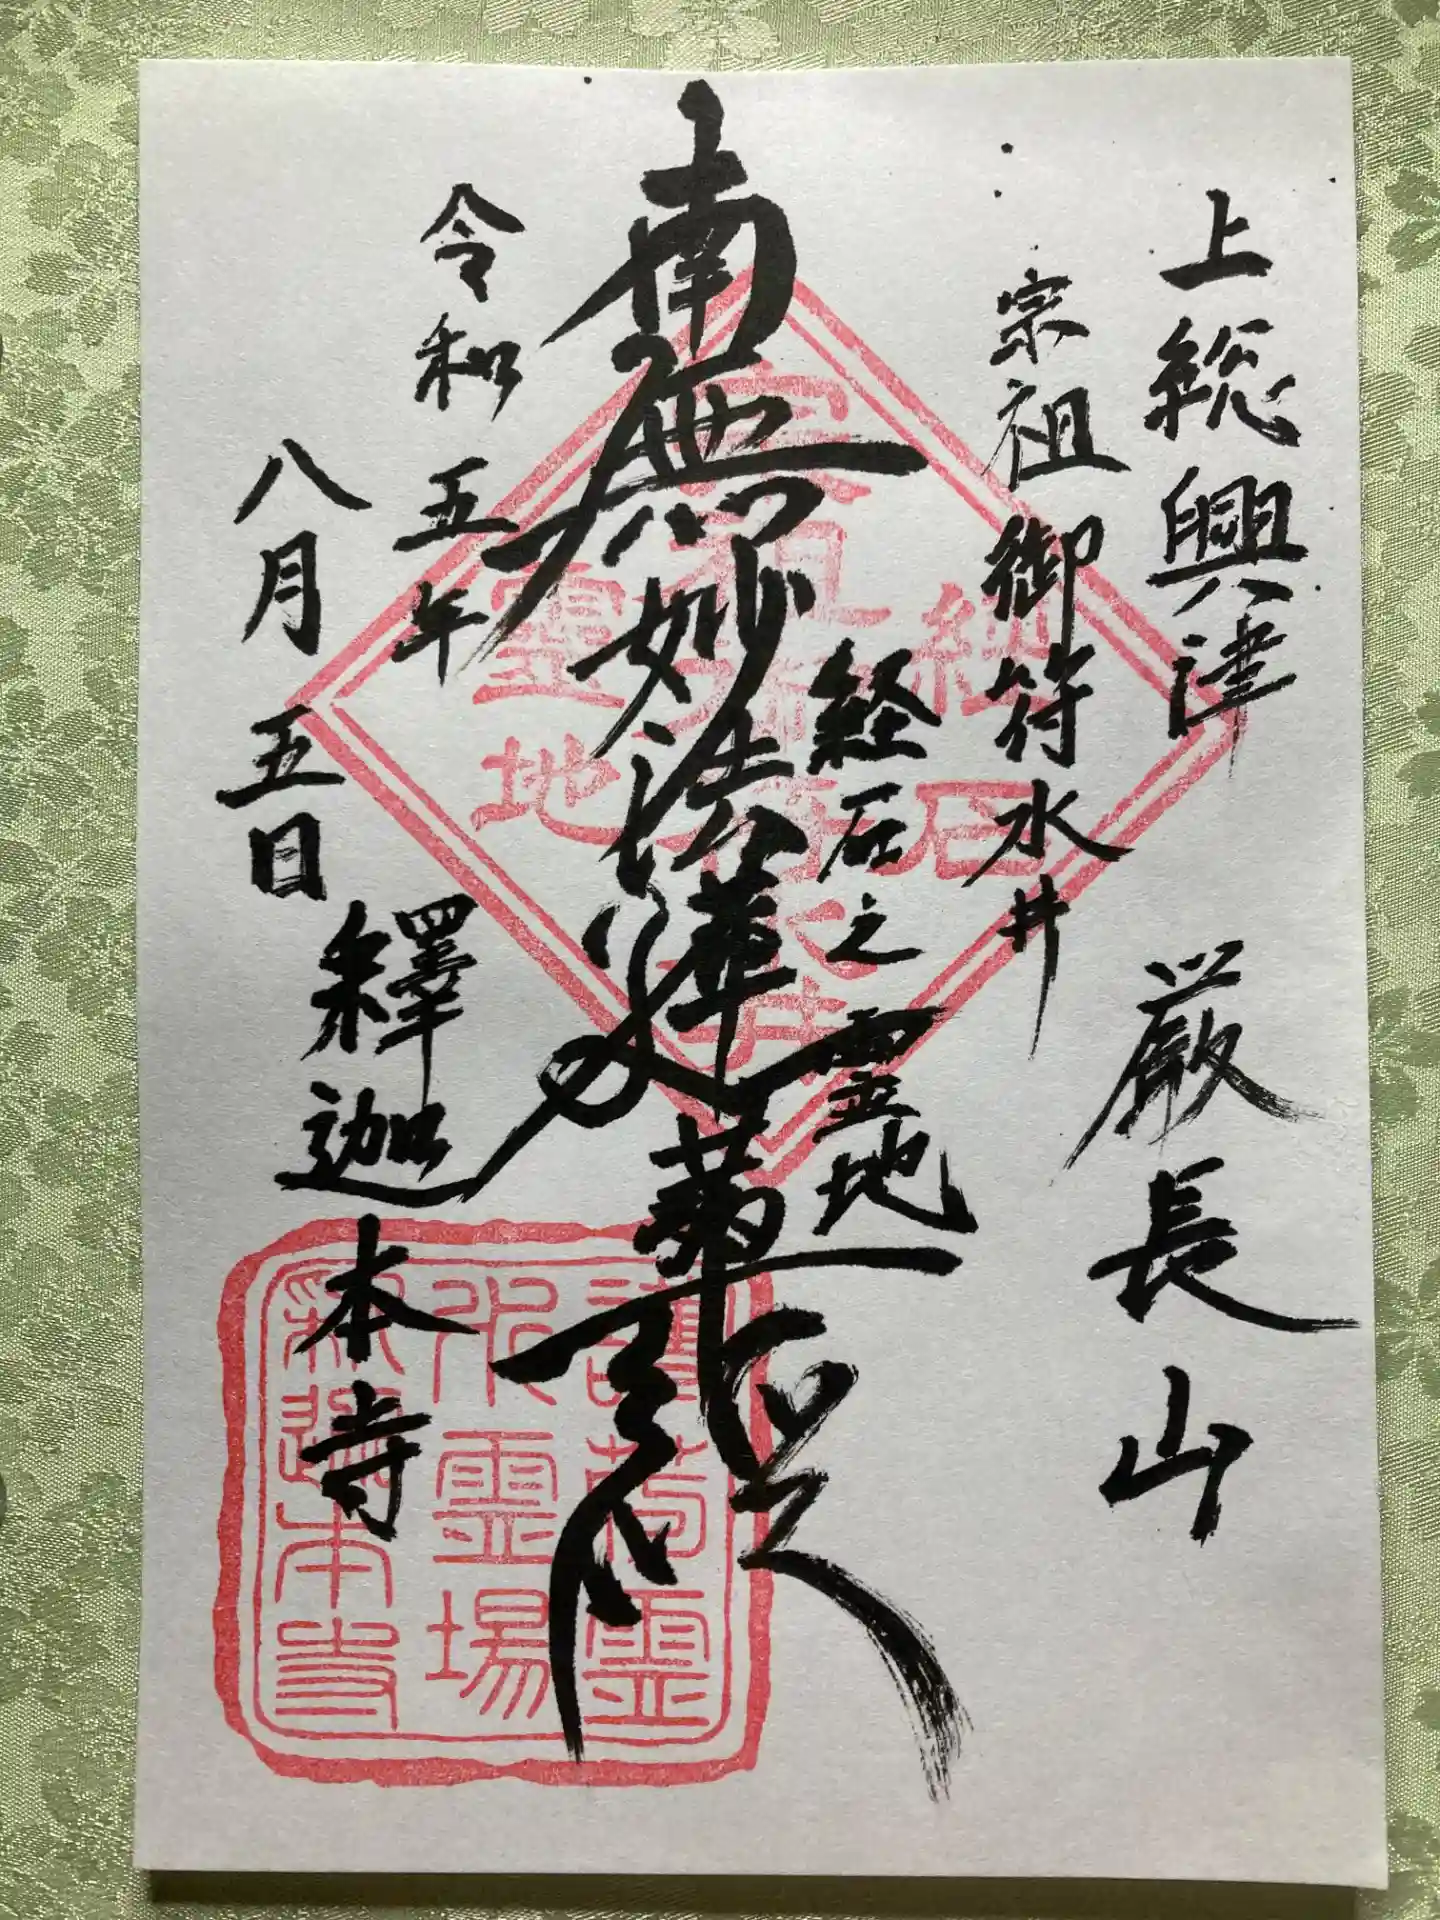 上総興津 厳長山
宗祖御符水井
経石之霊地
南無妙法蓮華経
令和五年
八月五日
釋迦本寺
経石
宗祖御符水井
霊地
霊
水霊場
釈迦本寺